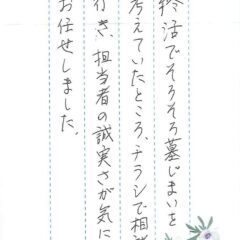 終活でそろそろ墓じまいを
考えていたところ、チラシで相談
行き、担当者の誠実さが気に
お任せしました。